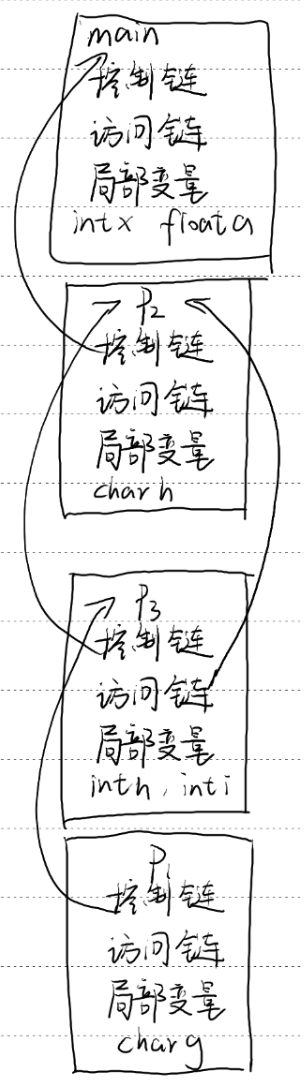 main
控制链
访问链
局部变量
int x float a
P2
控制链
访问链
局部变量
char h
P3
控制链
访问链
局部变量
int h, int i
P1
控制链
访问链
局部变量
char g